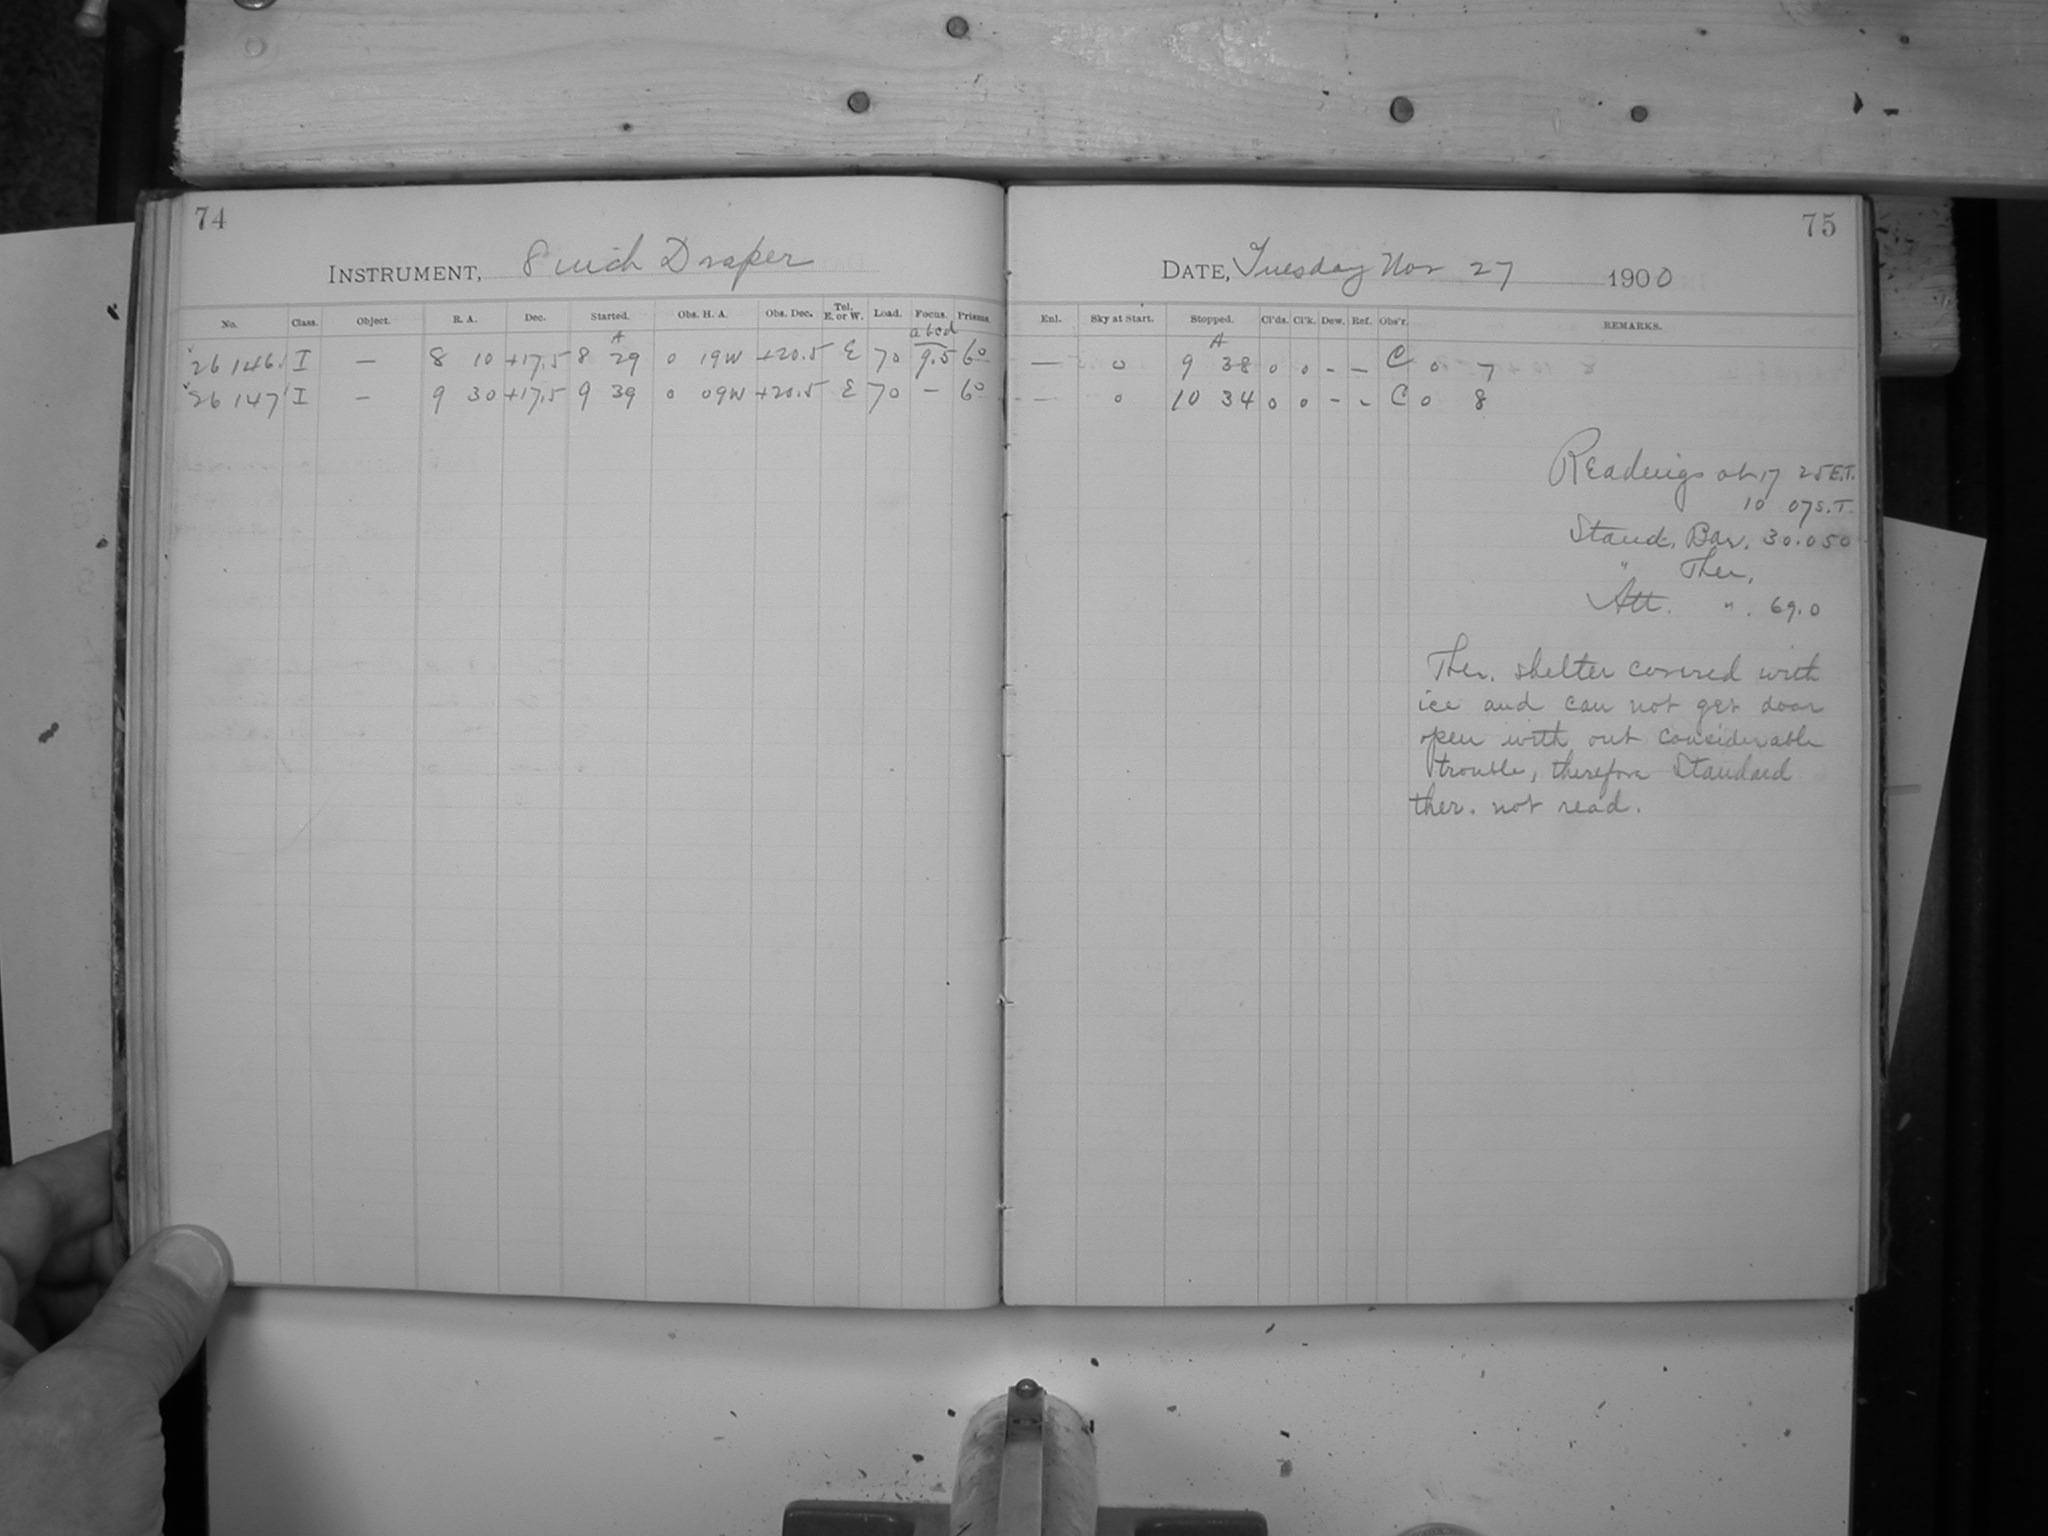 74
INSTRUMENT, 8 inch Draper
No. Class. Object. R. A. Dec. Started. Obs. H. A. Obs. Dec. Tel. E. or W. Load. Focus. Prisms.
A abcd
26 146 I — 8 10 +17.5 8 29 0 19W +20.5 E 70 9.5 6°
26 147 I — 9 30 +17.5 9 39 0 09W +20.5 E 70 — 6°
75
DATE, Tuesday Nov 27 1900
Enl. Sky at Start. Stopped. Cl'ds. Cl'k. Dew. Ref. Obs'r. REMARKS.
A
— 0 9 38 0 0 - - C 0 7
— 0 10 34 0 0 - - C 0 8
Readings at 17 25 E.T.
10 07 S.T.
Stand. Bar. 30.050
" Ther.
Att. " . 69.0
Ther. shelter covered with
ice and can not get door
open with out considerable
trouble, therefore Standard
ther. not read.